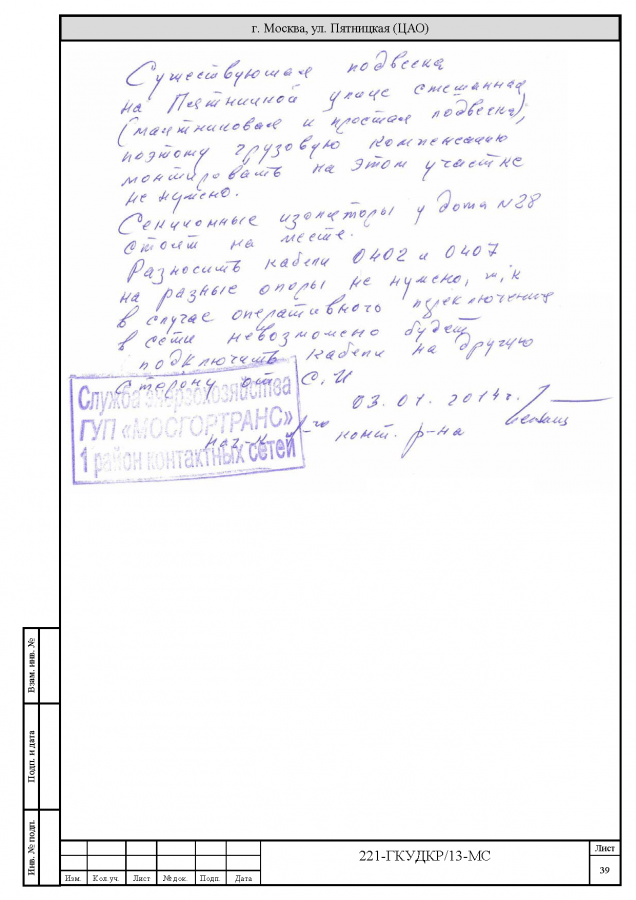 г. Москва, ул. Пятницкая (ЦАО)
Существующая подвеска
на Пятничной улице смешанная
(маятниковая и простая подвеска),
поэтому грузовую компенсацию
монтировать на этом участке
не нужно.
Секционные изоляторы у дома №28
стоят на месте.
Разносить кабели 0402 и 0407
на разные опоры не нужно, т,к
в случае оперативного переключения
в сети невозможно будет
подключить кабели на другую
сторону от С.И
03.01.2014г.
Нач-к 1-го конт. р-на
Служба энергохозяйства
ГУП «МОСГОРТРАНС»
1 район контактных сетей
Взам. инв. №
Подп. и дата
Инв. № подп.
Изм. Кол уч. Лист № док. Подп. Дата
221-ГКУДКР/13-МС
Лист
39